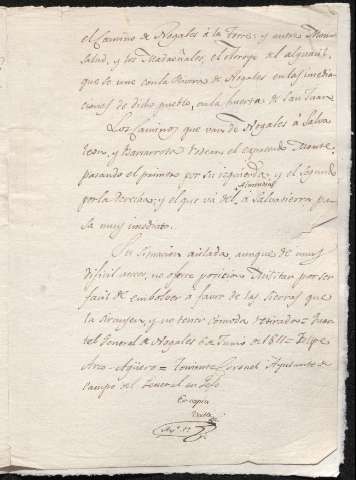 el Camino de Nogales á la Torre: y entre Monsalud, y los Madroñales, el Arroyo
que se une con la Rivera de Nogales en las inmediaciones de dicho pueblo, en la huerta de San Juan
Los Caminos que van de Nogales á Salvaleon, y Barcarrota rodean el expresado Monte,
pasando el primero por su izquierda, y el segundo
por la derecha; y el que va de á Salvatierra pasa muy inmediato.
Su situacion aislada, aunque de muy
dificil acceso, no ofrece posicion Militar por ser
facil de embolver á favor de las sierras que
la circuyen, y no tener cómoda retirada = Quartel General de Nogales 6 de Junio de 1811 = Felipe
Arco-Agüero = Teniente Coronel Ayudante de
campo del General en Gefe
Es copia